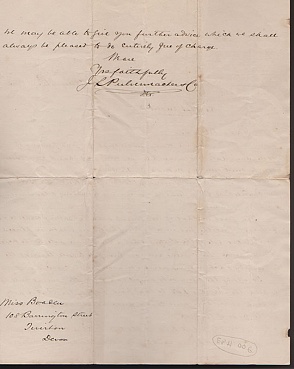 we may be able to give you further advice which we shall
always be pleased to do entirely free of charge.
We are
Yrs faithfully
Miss Boaden
108 Barrington Street
Tiverton
Devon